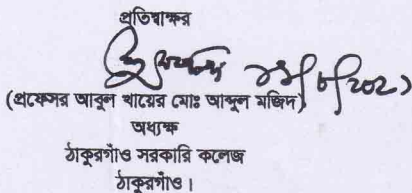 প্রতিস্বাক্ষর
(প্রফেসর আবুল খায়ের মোঃ আব্দুল মজিদ)
অধ্যক্ষ
ঠাকুরগাঁও সরকারি কলেজ
ঠাকুরগাঁও।